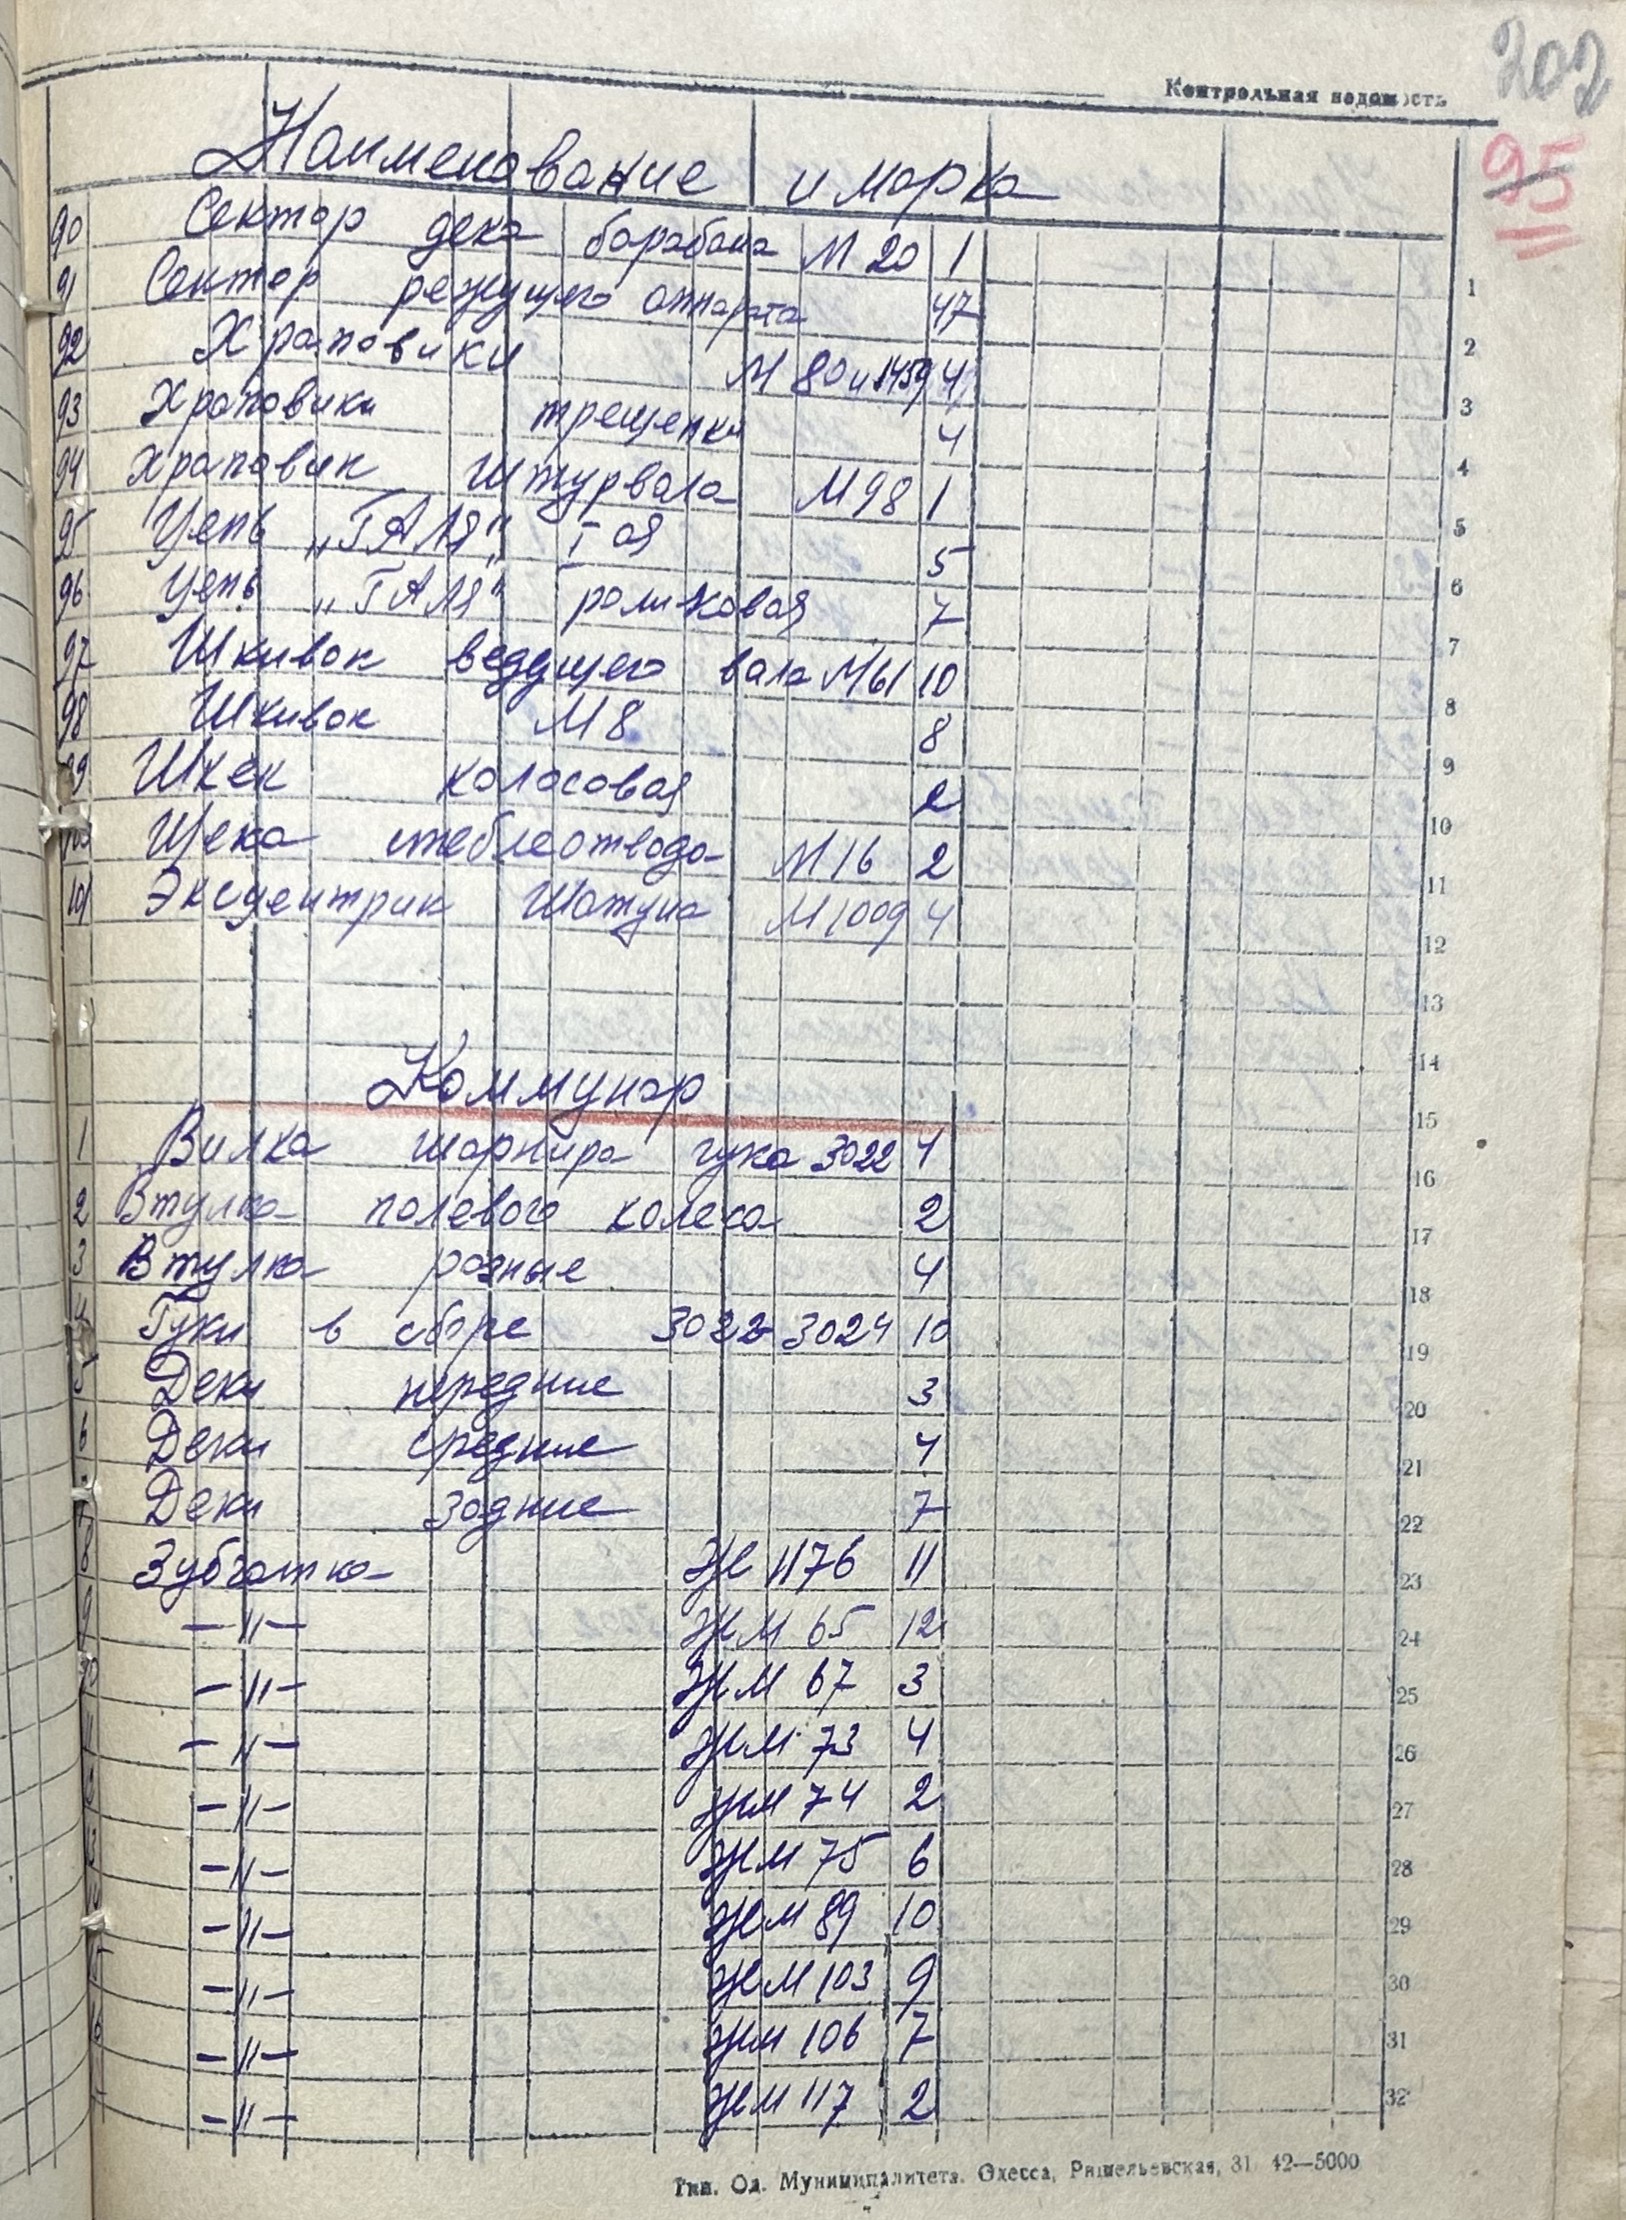 202
Контрольная ведомость
95
Наименование и марка
90 Сектор дека барабана М 20 1
91 Сектор режущего аппарата 47
92 Храповики М 80 и 1459 4
93 Храповики трещетки 4
94 Храповик Штурвала М 98 1
95 Цепь „ГАЛЯ" Г ая 5
96 Цепь „ГАЛЯ" роликовая 7
97 Шкивок ведущего вала М 61 10
98 Шкивок М 8 8
99 Шнек колосовая 2
100 Щека стеблеотвода М 16 2
101 Эксцентрик Шатуна М 1009 4
Коммунар
1 Вилка шарнира гука 3022 4
2 Втулка полевого колеса 2
3 Втулка разные 4
4 Гуки в сборе 3022-3024 10
5 Деки передние 3
6 Деки средние 4
7 Деки задние 7
8 Зубчатка ЖС 1176 11
9 —"— ЖМ 65 12
10 —"— ЖМ 67 3
11 —"— ЖМ 73 4
—"— ЖМ 74 2
13 —"— ЖМ 75 6
—"— ЖМ 89 10
15 —"— ЖМ 103 9
16 —"— ЖМ 106 7
—"— ЖМ 117 2
1
2
3
4
5
6
7
8
9
10
11
12
13
14
15
16
17
18
19
20
21
22
23
24
25
26
27
28
29
30
31
32
Тип. Од. Муниципалитета. Одесса, Ришельевская, 31 42—5000